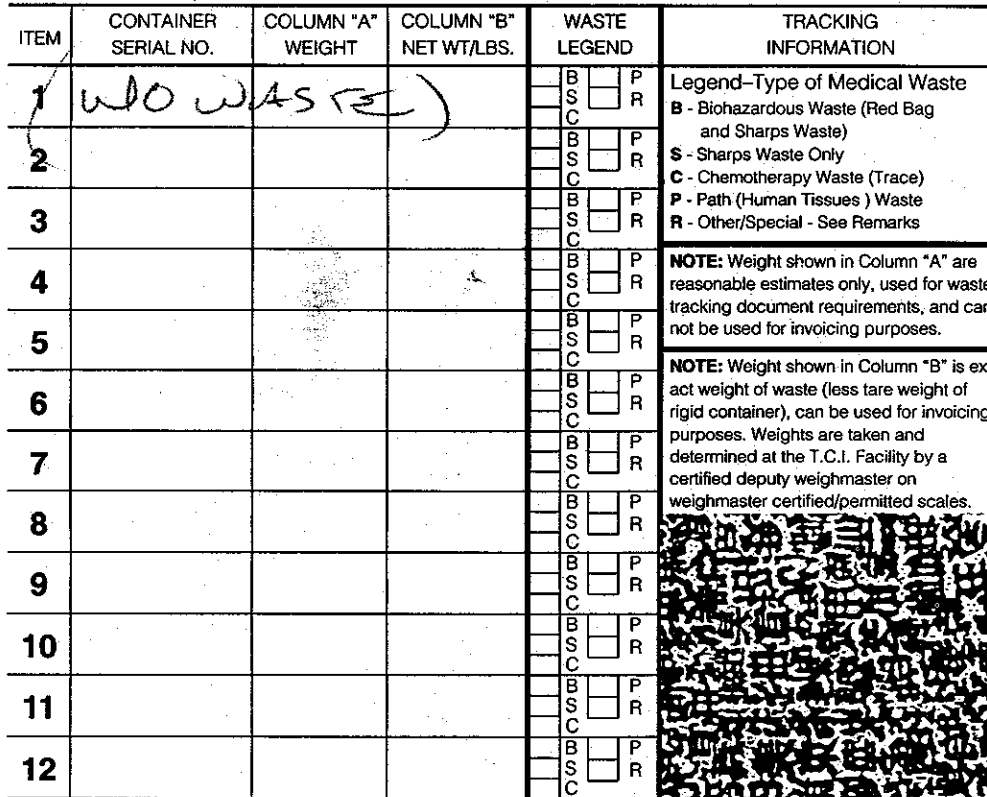 ITEM CONTAINER SERIAL NO. COLUMN "A" WEIGHT COLUMN "B" NET WT/LBS. WASTE LEGEND TRACKING INFORMATION
1 (W/O WASTE) B S C P R
2 B S C P R
3 B S C P R
4 B S C P R
5 B S C P R
6 B S C P R
7 B S C P R
8 B S C P R
9 B S C P R
10 B S C P R
11 B S C P R
12 B S C P R
Legend–Type of Medical Waste
B - Biohazardous Waste (Red Bag
and Sharps Waste)
S - Sharps Waste Only
C - Chemotherapy Waste (Trace)
P - Path (Human Tissues ) Waste
R - Other/Special - See Remarks
NOTE: Weight shown in Column "A" are
reasonable estimates only, used for waste
tracking document requirements, and can
not be used for invoicing purposes.
NOTE: Weight shown in Column "B" is ex
act weight of waste (less tare weight of
rigid container), can be used for invoicing
purposes. Weights are taken and
determined at the T.C.I. Facility by a
certified deputy weighmaster on
weighmaster certified/permitted scales.